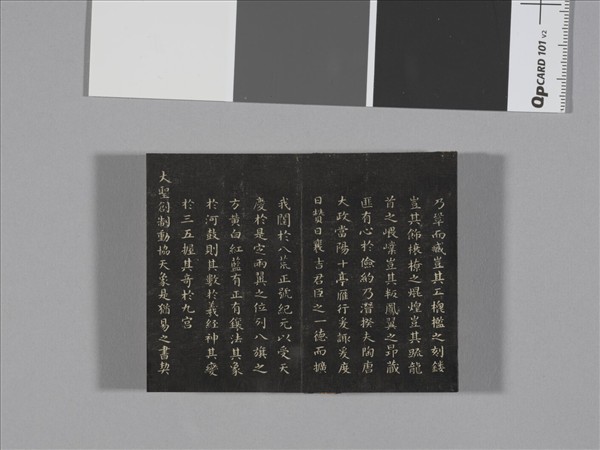 乃翬而咸豈其工檻之刻鏤
豈其飾榱橑之焜煌豈其龍
首之豈其鳳翼之昂藏
匪有心於儉約乃潛揆夫陶唐
大政當陽十亭雁行爰諏爰度
曰贊曰襄吉君臣之一德而擴
我閫於八荒正號紀元以受天
慶於是定兩翼之位列八旗之
方黃白紅藍有正有鑲法其象
於河鼓則其數於羲經神其變
於三五握其奇於九宮
大聖創制動協天象是猶易之書契
QpCARD 101 v2